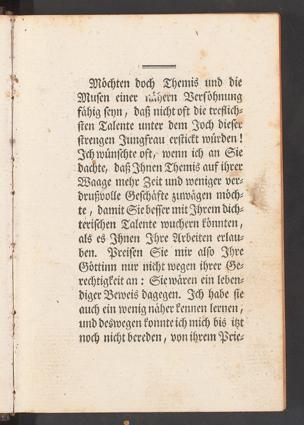 Möchten doch Themis und die
Musen einer nähern Versöhnung
fähig seyn, daß nicht oft die treflich-
sten Talente unter dem Joch dieser
strengen Jungfrau erstickt würden!
Ich wünschte oft, wenn ich an Sie
dachte, daß Ihnen Themis auf ihrer
Waage mehr Zeit und weniger ver-
drußvolle Geschäfte zuwägen möch-
te, damit Sie besser mit Ihrem dich-
terischen Talente wuchern könnten,
als es Ihnen Ihre Arbeiten erlau-
ben. Preisen Sie mir also Ihre
Göttinn nur nicht wegen ihrer Ge-
rechtigkeit an: Sie wären ein leben-
diger Beweis dagegen. Ich habe sie
auch ein wenig näher kennen lernen,
und deswegen konnte ich mich bis itzt
noch nicht bereden, von ihrem Prie-